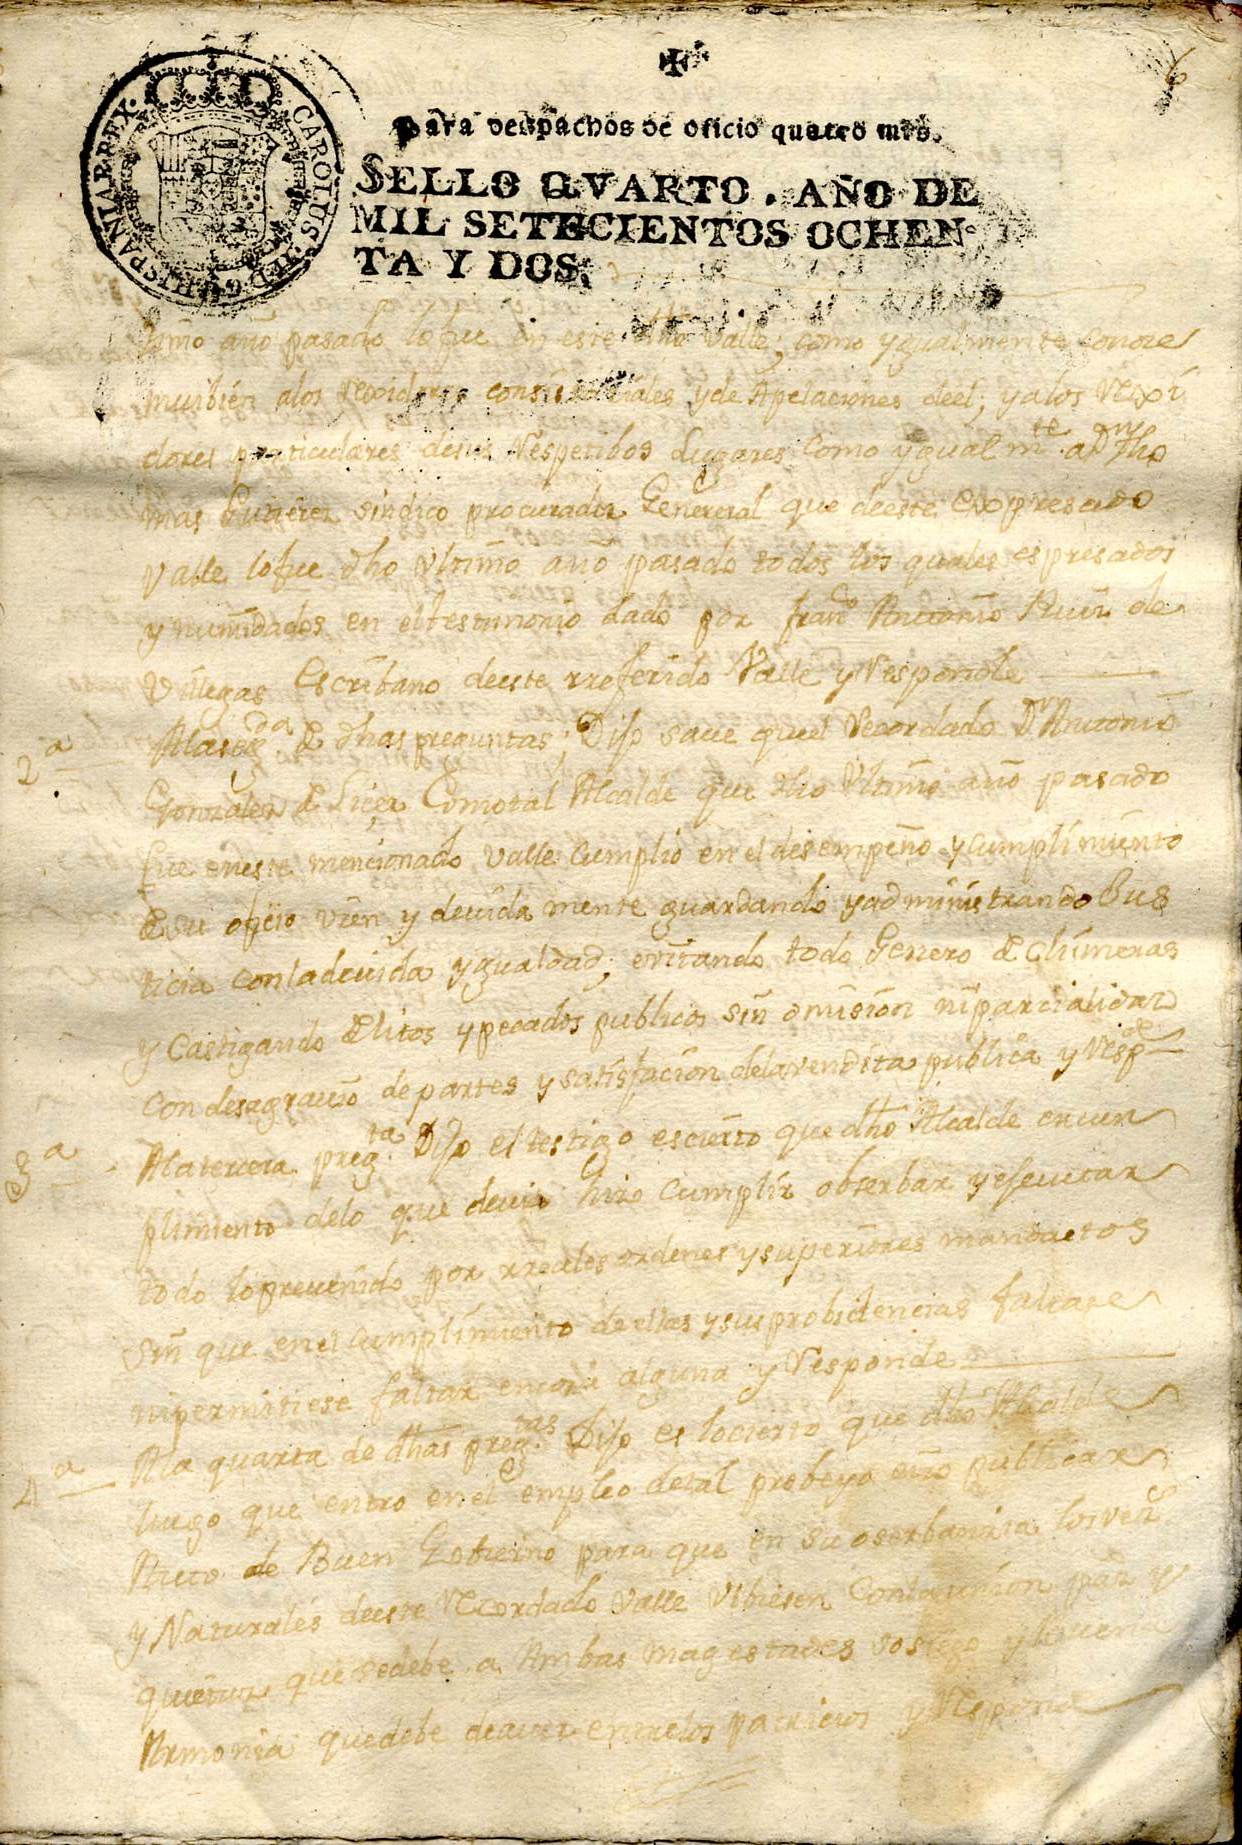 6
Para despachos de oficio quatro mrs.
SELLO QVARTO. AÑO DE
MIL SETECIENTOS OCHEN-
TA Y DOS.
CAROLUS III D.G. HISPANIAR REX
timo año pasado lo fue en este dho Valle; como ygualmente conoce
muibien alos rexidores consistoriales y de Apelaciones deel; y alos Rexi
dores particulares desus Respetibos Lugares como ygual mte. a Dn Tho
mas Gutierez sindico procurador General que deeste expresado
Valle lo fue dho Vltimo año pasado todos los quales espresados
y numidados en el testimonio dado por Franco Antonio Ruiz de
Villegas Escribano deeste rreferido Valle y Responde
2a Alasegda. de dhas preguntas; Dijo saue quel Recordado Dn Antonio
Gonzalez de Liez Comotal Alcalde que dho Vltimo año pasado
fue eneste mencionado Valle cumplio en el desempeño y cumplimiento
de su oficio vien y deuida mente guardando y administrando Jus
ticia conladeuida ygualdad; evitando todo Genero de chimeras
y Castigando delitos y pecados publicos sin omision ni parcialidad
con desagrauio de partes y satisfacion dela vendita publica y Respde
3a Alatercera pregta. Dijo el testigo escierto que dho Alcalde encun
plimiento delo que deuia hizo cumplir obserbar y ejecutar
todo lo preuenido por rreales ordenes y superiores mandatos
sin que en el cumplimiento deellas y sus probidencias faltase
nipermitiese faltar encosa alguna y Responde
4a Ala quarta de dhas pregtas. Dijo es locierto que dho Alcalde
luego que entro en el empleo detal probeyo e hizo publicar
Auto de Buen Gobierno para que en su oserbancia los vezs
y Naturales deeste Recordado Valle Vibiesen Conlaunion paz y
quietuz que sedebe a Ambas Magestades sosiego y buena
Armonia quedebe deauer entrelos patricios y Responde